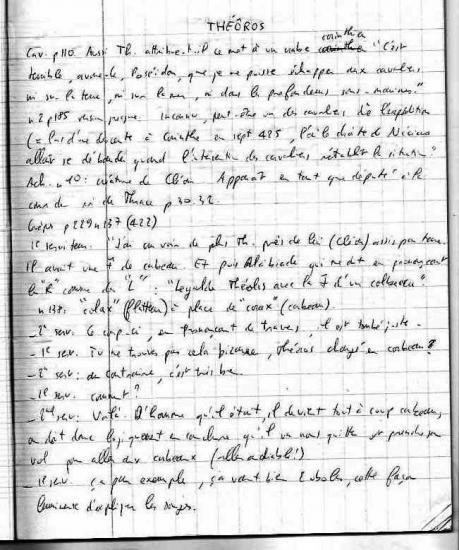 THÉÔROS
Cav. p 110. Aussi Th. attribue-t-il ce mot à un crabe corinthien "C'est
terrible, avoue-le, Poséidon, que je ne puisse échapper aux cavaliers,
ni sur la terre, ni sur la mer, ni dans les profondeurs sous-marines."
n 2 p 185 inconnu, peut-être un des cavaliers de l'expédition
(= lors d'une descente à Corinthe en sept 425, l'aile droite de Nicias
allait se débander quand l'intervention des cavaliers rétablit la situation."
Ach. n 10: créature de Cléon. Apparaît en tant que député
roi de Thrace p 30.32.
Guêpes p 229 n 137 (422)
1e serviteur: "J'ai cru voir de plus Th. près de lui (Cléon) assis par terre.
Il avait une de corbeau. Et puis Alcibiade qui me dit en prononçant
le "R" comme du "L": "Legalde Théolos avec la d'un colbeau"
n 137: "colax" (flatteur) à place de "corax" (corbeau).
- 2e serv. Ce coup-ci, en prononçant de travers, il est tombé juste.
- 1e serv. Tu ne trouves pas cela bizarre, Théôros changé en corbeau?
- 2e serv: au contraire, c'est très bien.
- 1e serv. comment?
- 2e serv: Voilà. D'homme qu'il était, il devient tout à coup corbeau,
on doit donc en conclure qu'il va nous quitter et prendre son
vol pour aller aux corbeaux (aller au diable!)
- 1e serv. ça par exemple, ça vaut bien 2 oboles, cette façon
lumineuse d'expliquer les songes.